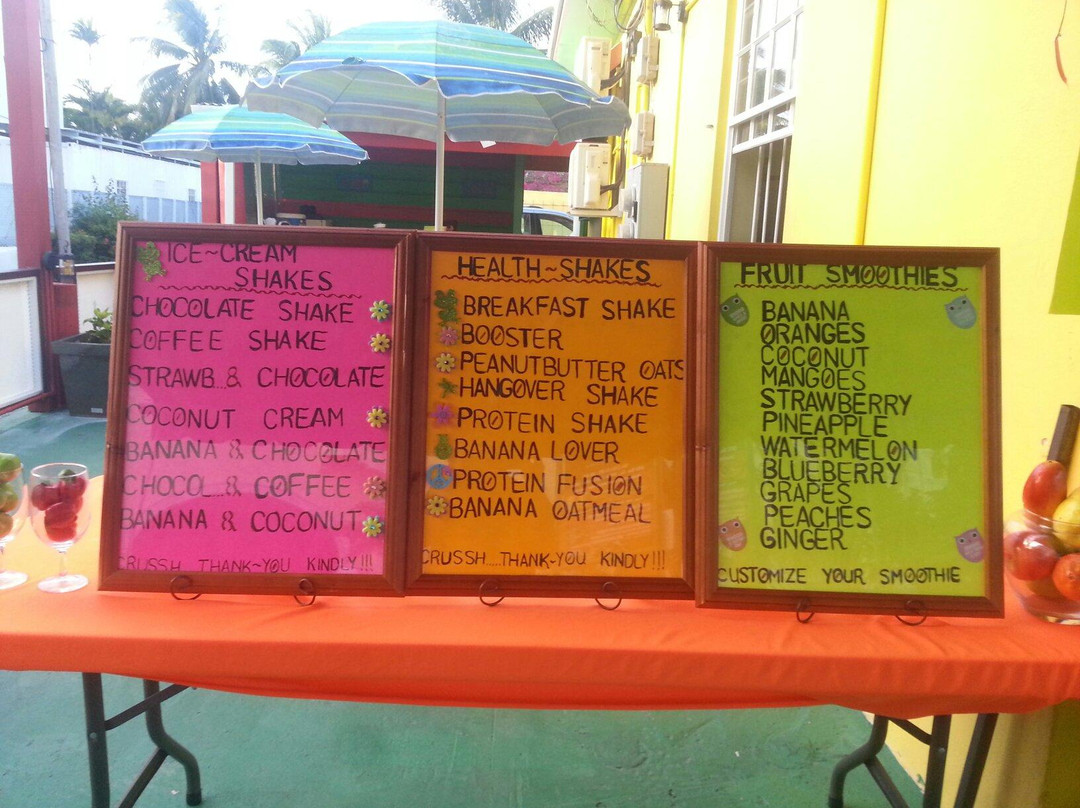 ICE~CREAM
SHAKES
CHOCOLATE SHAKE
COFFEE SHAKE
STRAWB..& CHOCOLATE
COCONUT CREAM
BANANA & CHOCOLATE
CHOCOL...& COFFEE
BANANA & COCONUT
CRUSSH.. THANK~YOU KINDLY!!!
HEALTH~SHAKES
BREAKFAST SHAKE
BOOSTER
PEANUTBUTTER OATS
HANGOVER SHAKE
PROTEIN SHAKE
BANANA LOVER
PROTEIN FUSION
BANANA OATMEAL
CRUSSH.....THANK~YOU KINDLY!!!
FRUIT SMOOTHIES
BANANA
ORANGES
COCONUT
MANGOES
STRAWBERRY
PINEAPPLE
WATERMELON
BLUEBERRY
GRAPES
PEACHES
GINGER
CUSTOMIZE YOUR SMOOTHIE